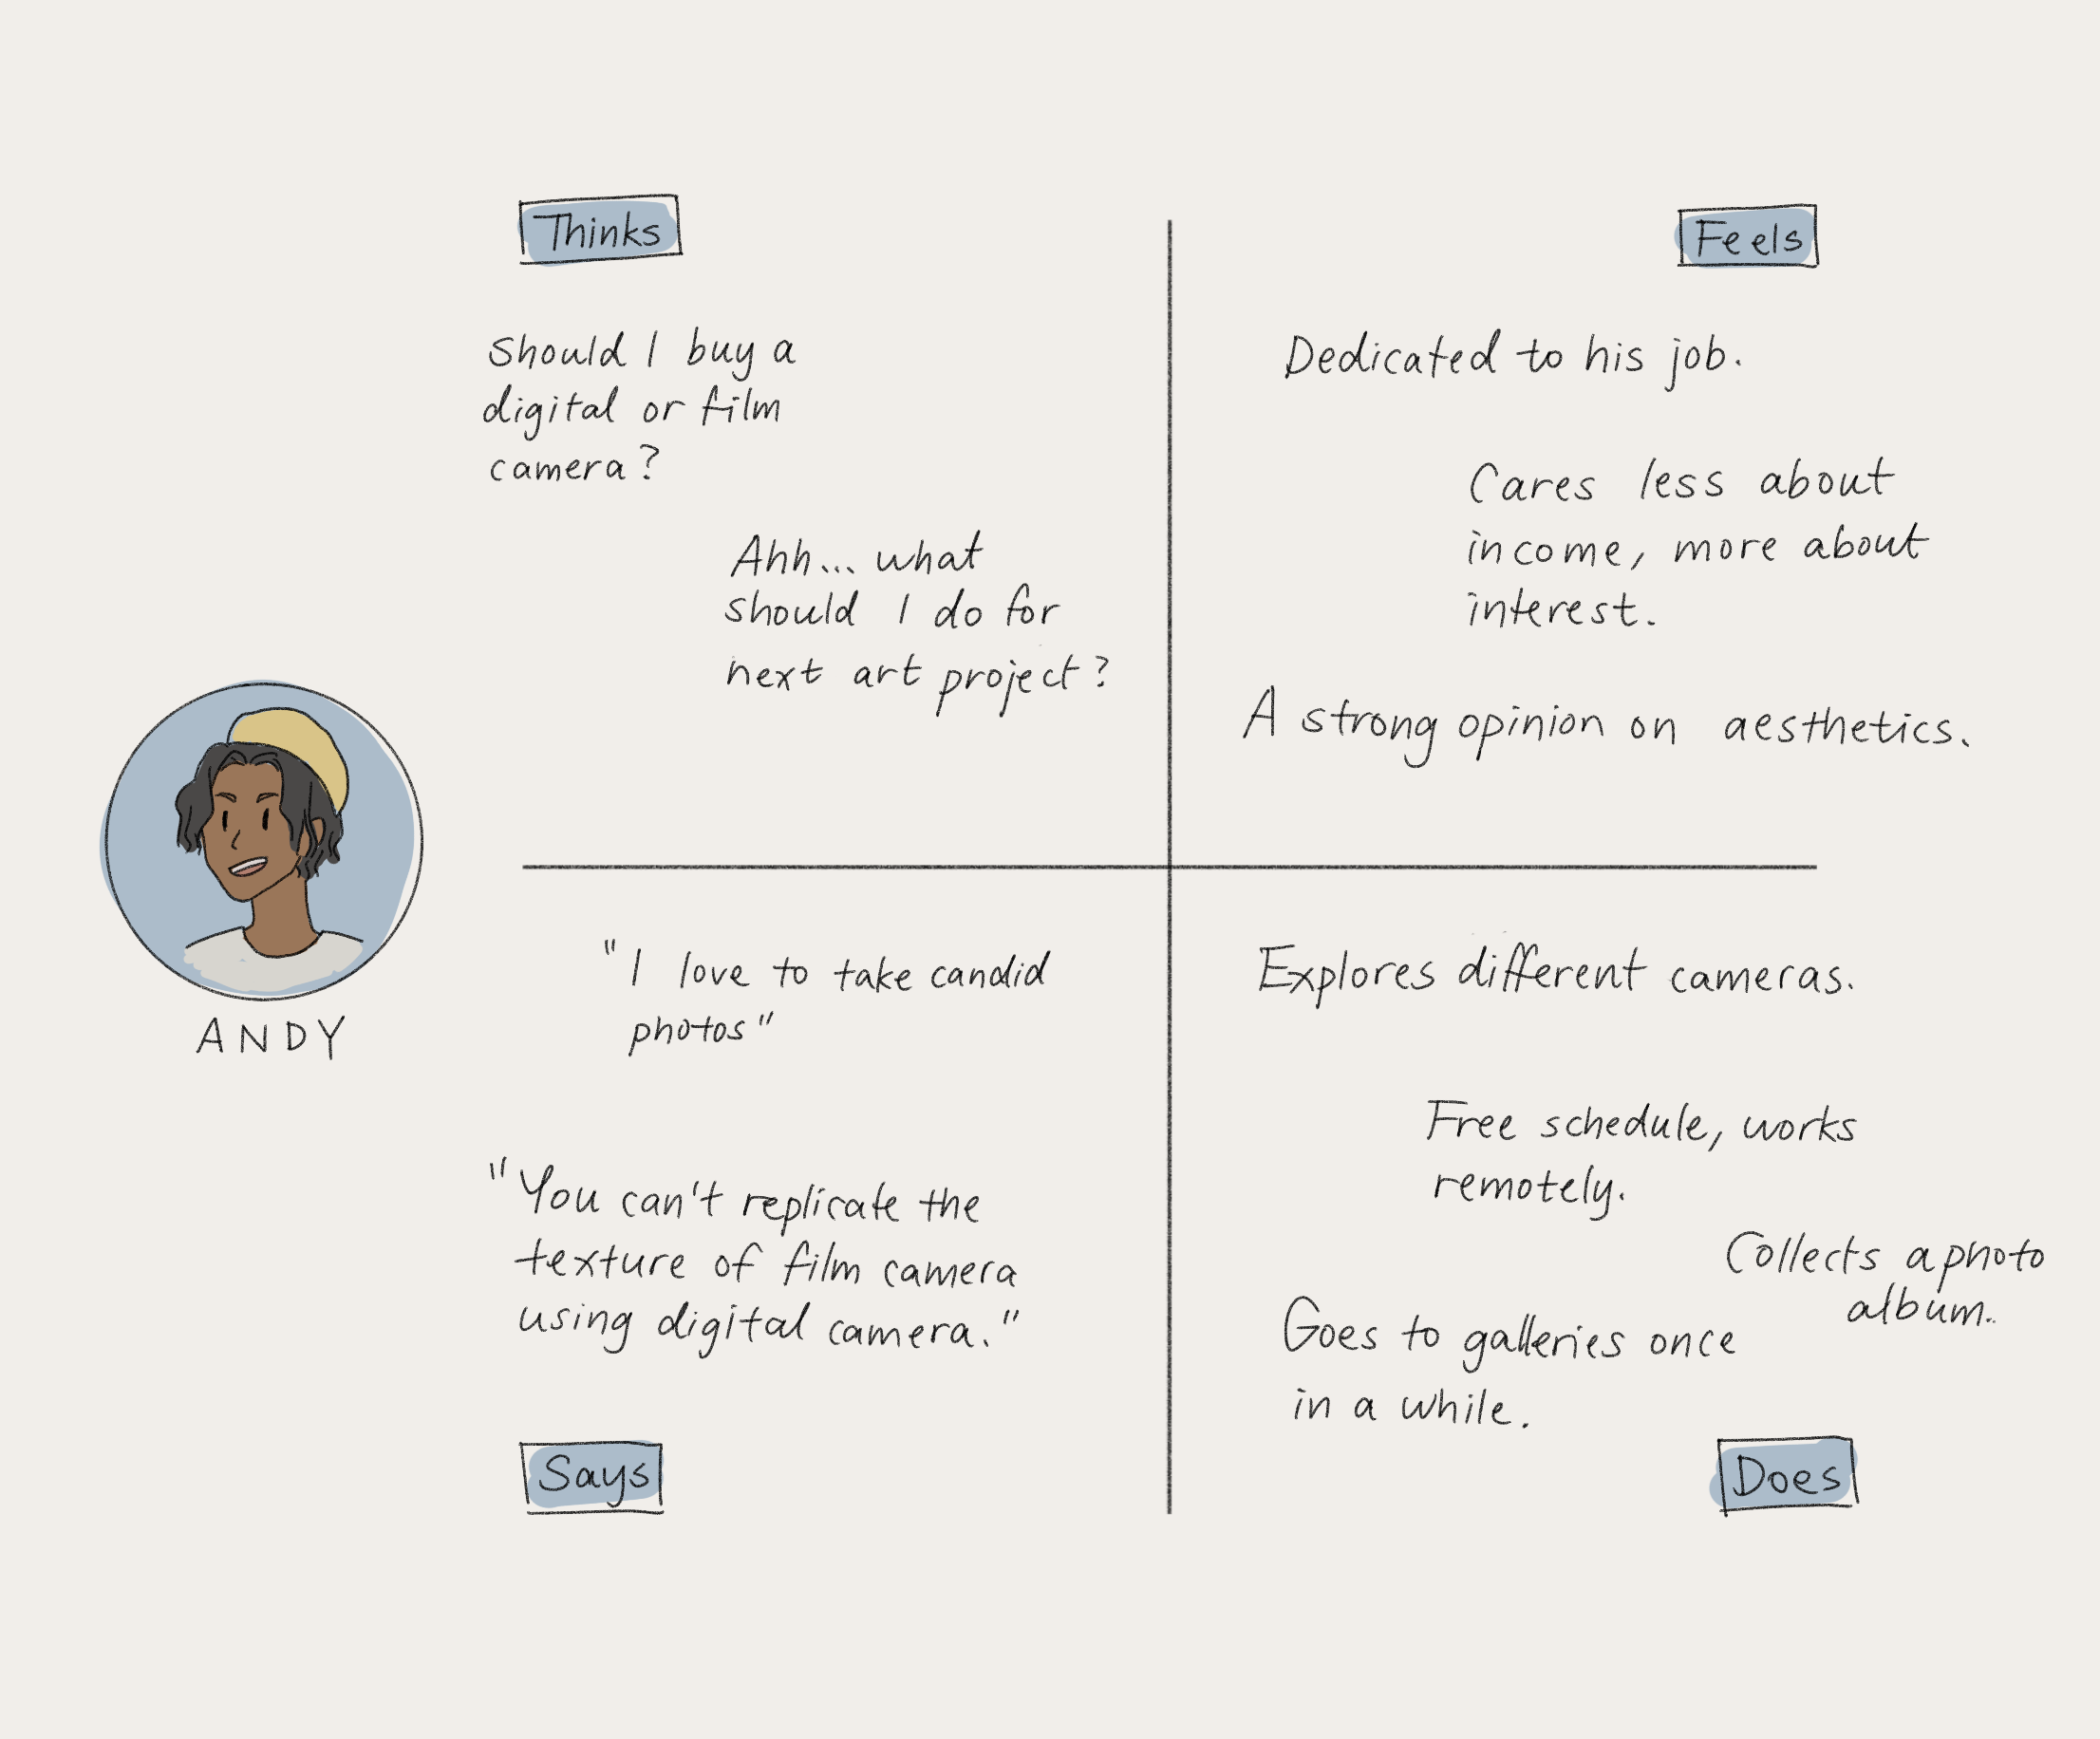 Thinks
Should I buy a
digital or film
camera?
Ahh... what
should I do for
next art project?
Feels
Dedicated to his job.
Cares less about
income, more about
interest.
A strong opinion on aesthetics.
ANDY
"I love to take candid
photos"
"You can't replicate the
texture of film camera
using digital camera."
Says
Explores different cameras.
Free schedule, works
remotely.
Collects a photo
album.
Goes to galleries once
in a while.
Does